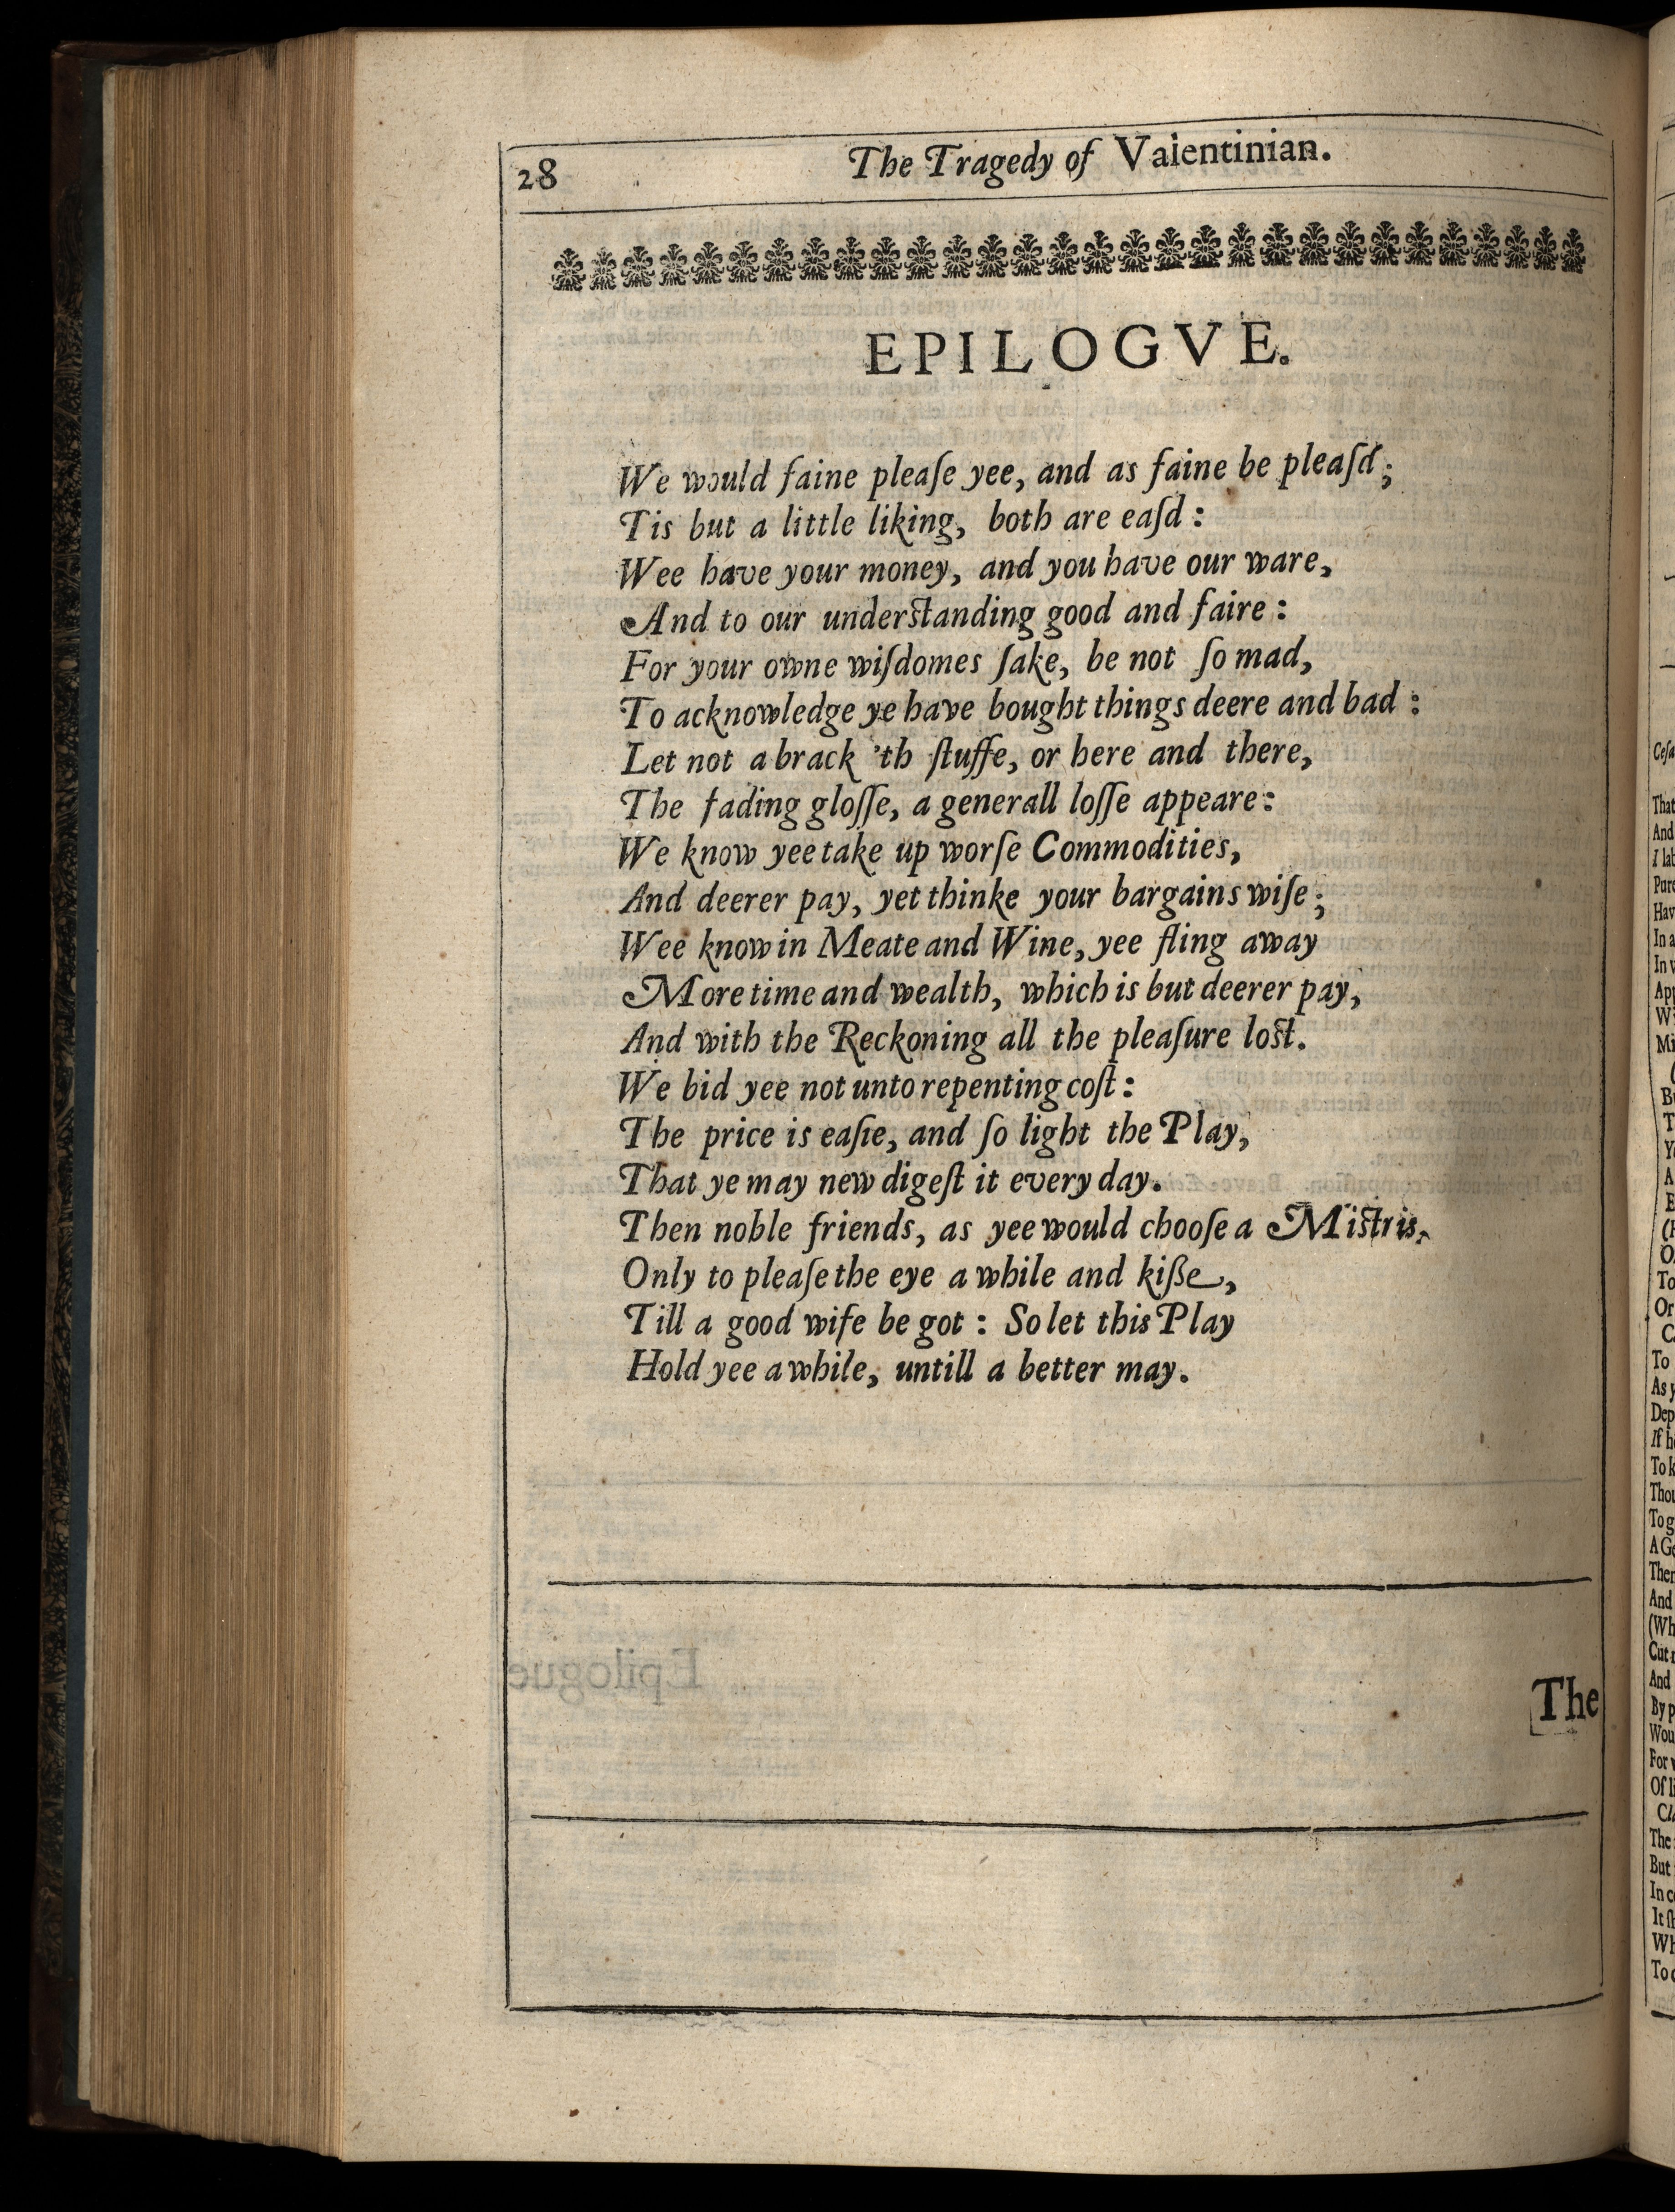 28
The Tragedy of Vaientinian.
EPILOGVE.
We would faine pleaſe yee, and as faine be pleaſd;
Tis but a little liking, both are eaſd:
Wee have your money, and you have our ware,
And to our understanding good and faire:
For your owne wiſdomes ſake, be not ſo mad,
To acknowledge ye have bought things deere and bad:
Let not a brack 'th ſtuffe, or here and there,
The fading gloſſe, a generall loſſe appeare:
We know yee take up worſe Commodities,
And deerer pay, yet thinke your bargains wiſe;
Wee know in Meate and Wine, yee fling away
More time and wealth, which is but deerer pay,
And with the Reckoning all the pleaſure lost.
We bid yee not unto repenting coſt:
The price is eaſie, and ſo light the Play,
That ye may new digeſt it every day.
Then noble friends, as yee would chooſe a Mistris,
Only to pleaſe the eye a while and kiße,
Till a good wife be got: So let this Play
Hold yee a while, untill a better may.
The
Ceſa
That
And
I lab
Pure
Hav
In a
In v
App
Wi
Mi
To
Or
To
As y
Dep
If he
To k
Thou
To g
A Go
Then
And
(Wh
Cut
And
By p
Wou
For
Of li
The
But
In co
It ſh
Wh
To